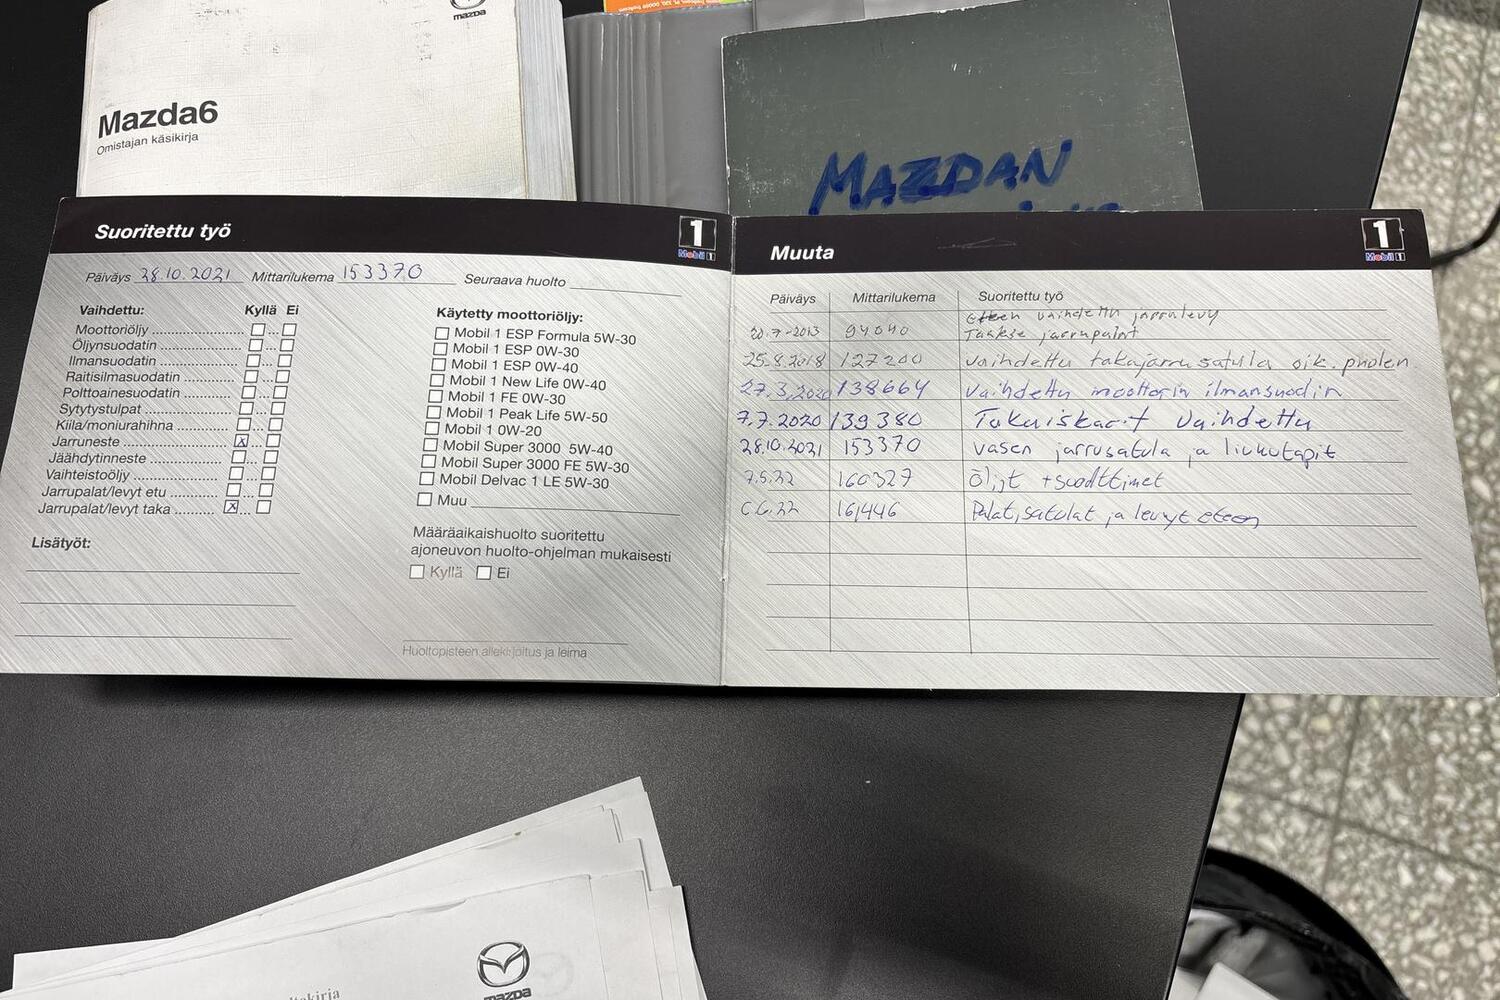 mazda
Mazda6
Omistajan käsikirja
MAZDAN
Suoritettu työ
1
Mobil 1
Päiväys 28.10.2021 Mittarilukema 153370 Seuraava huolto
Vaihdettu: Kyllä Ei
Moottoriöljy
Öljynsuodatin
Ilmansuodatin
Raitisilmasuodatin
Polttoainesuodatin
Sytytystulpat
Kiila/moniurahihna
Jarruneste x
Jäähdytinneste
Vaihteistoöljy
Jarrupalat/levyt etu
Jarrupalat/levyt taka x
Lisätyöt:
Käytetty moottoriöljy:
Mobil 1 ESP Formula 5W-30
Mobil 1 ESP 0W-30
Mobil 1 ESP 0W-40
Mobil 1 New Life 0W-40
Mobil 1 FE 0W-30
Mobil 1 Peak Life 5W-50
Mobil 1 0W-20
Mobil Super 3000 5W-40
Mobil Super 3000 FE 5W-30
Mobil Delvac 1 LE 5W-30
Muu
Määräaikaishuolto suoritettu
ajoneuvon huolto-ohjelman mukaisesti
Kyllä Ei
Huoltopisteen allekirjoitus ja leima
Muuta
1
Mobil 1
Päiväys Mittarilukema Suoritettu työ
vaihdettu jarrulevy
20.7-2013 94040 Taakse jarrupalat
25.8.2018 127200 vaihdettu takajarrusatula oik. puolen
27.3.2020 138664 vaihdettu moottorin ilmansuodin
7.7.2020 139380 Takaiskarit vaihdettu
28.10.2021 153370 vasen jarrusatula ja liukutapit
7.5.22 160327 Öljyt + suodattimet
6.6.22 161446 Palat, satulat ja levyt eteen
mazda